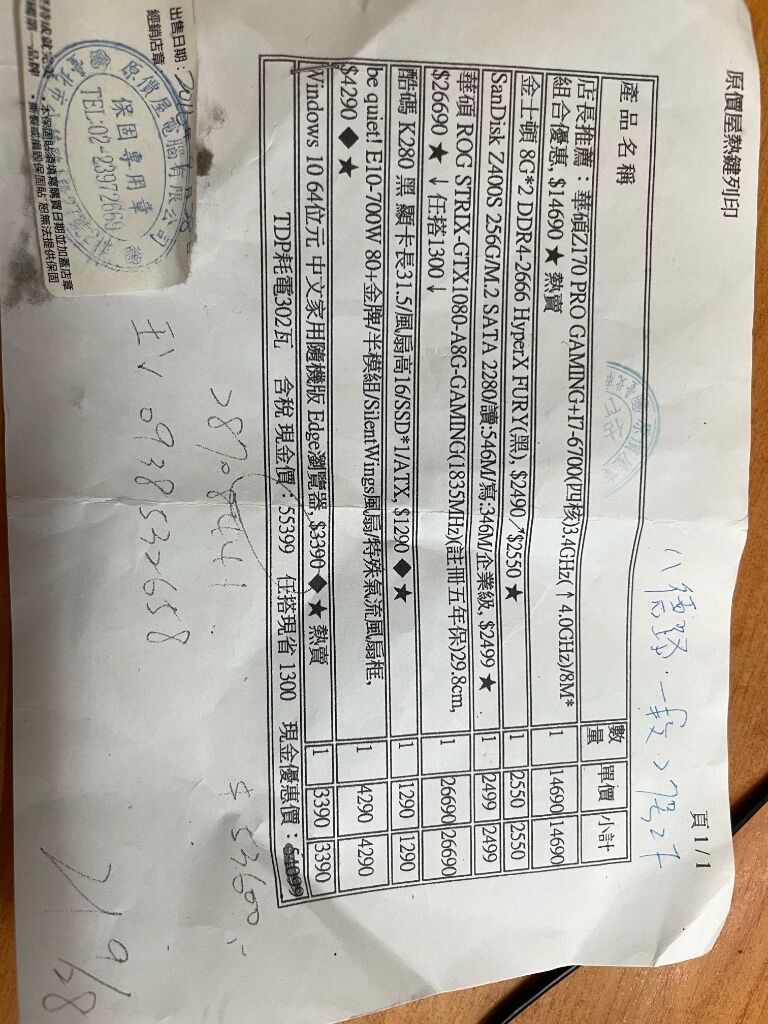 原價屋熱鍵列印
頁 1 / 1
產 品 名 稱 數量 單價 小計
店長推薦：華碩Z170 PRO GAMING+I7-6700(四核)3.4GHz(↑4.0GHz)/8M*
組合優惠, $14690 ★ 熱賣 1 14690 14690
金士頓 8G*2 DDR4-2666 HyperX FURY(黑), $2490↗$2550 ★ 1 2550 2550
SanDisk Z400S 256G/M.2 SATA 2280/讀:546M/寫:346M/企業級, $2499 ★ 1 2499 2499
華碩 ROG STRIX-GTX1080-A8G-GAMING(1835MHz)(註冊五年保)29.8cm,
$26690 ★ ↓任搭1300↓ 1 26690 26690
酷碼 K280 黑 顯卡長31.5/風扇高16/SSD*1/ATX, $1290 ◆ ★ 1 1290 1290
be quiet! E10-700W 80+金牌/半模組/SilentWings風扇/特殊氣流風扇框,
$4290 ◆ ★ 1 4290 4290
Windows 10 64位元 中文家用隨機版 Edge瀏覽器, $3390 ◆ ★ 熱賣 1 3390 3390
TDP耗電302瓦 含稅 現金價：55399 任搭現省 1300 現金優惠價：54099
$ 53600
28708441
0938532658
出售日期：
經銷店章
原價屋電腦有限公司
保固專用章
TEL:02-23972669
本保固貼須填寫購買日期並加蓋店章
撕裂或損毀保固貼 恕無法提供保固